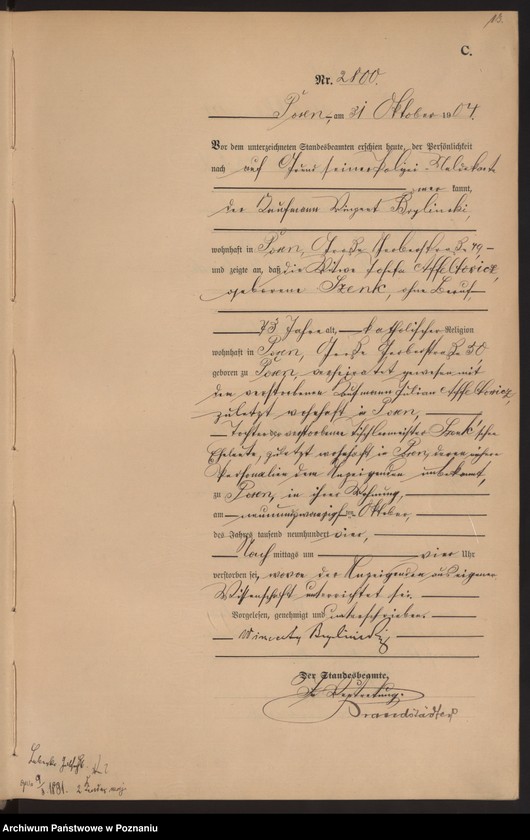 13.
C.
Nr. 2800.
Posen, am 31 Oktober 1904.
Vor dem unterzeichneten Standesbeamten erschien heute, der Persönlichkeit
nach auf Grund seiner Polizei-Meldekarte
kannt,
der Kaufmann Vincent
wohnhaft in Posen, Große Gerberstraße 49
und zeigte an, daß die Witwe Josefa Affeltowicz,
geborene Szenk, ohne Beruf,
73 Jahre alt, katholischer Religion
wohnhaft in Posen, Große Gerberstraße 50
geboren zu Posen, verheiratet gewesen mit
dem verstorbenen Kaufmann Julian Affeltowicz,
zuletzt wohnhaft in Posen,
Tochter der verstorbenen Tischlermeister Szenk'schen
Eheleute, zuletzt wohnhaft in Posen, deren nähere
Personalien dem Anzeigenden unbekannt,
zu Posen, in ihrer Wohnung,
am neunundzwanzigsten Oktober,
des Jahres tausend neunhundert vier,
Nach mittags um vier Uhr
verstorben sei, wovon der Anzeigende aus eigener
Wissenschaft unterrichtet sei.
Vorgelesen, genehmigt und unterschrieben.
Der Standesbeamte,
In Vertretung:
Brandstädter
1891. 2 Kinder
Archiwum Państwowe w Poznaniu